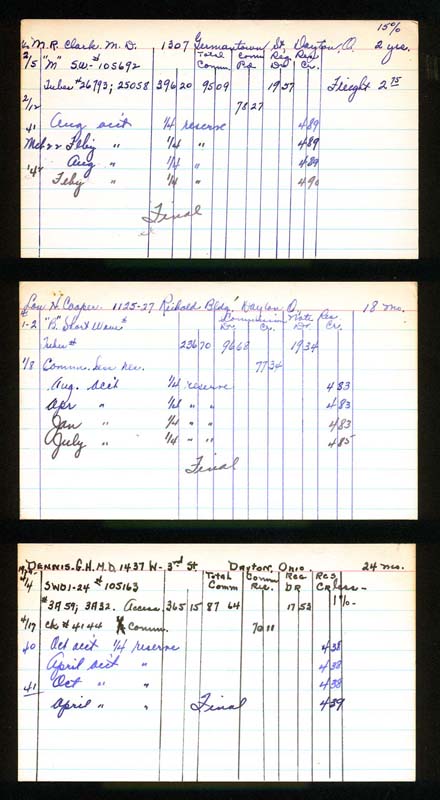 15%
M.R. Clark. M.D. 1307 Germantown St, Dayton, O. 2 yrs.
2/5 "M" S.W-#105692 Total Comm Comm Pd Reg. Dr. Res Cr.
Tubes #26793; 25058 396 20 95 09 19 57 Freight 2 75
2/12 78 27
41 Aug acc't 1/4 reserve 4 89
Mch 22 Feby " 1/4 " 4 89
Aug " 1/4 " 4 89
'42 Feby " 1/4 " 4 90
Final
Lou H Cooper. 1125-27 Reibold Bldg' Dayton O. 18 mo.
1-2 "B" Short Wave # Commission Dr. Cr. Note Dr. Res Cr.
Tubes # 236 70 96 68 19 34
1/8 Comm. Less Res. 77 34
Aug. acc't 1/4 reserve 4 83
Apr " 1/4 " " 4 83
Jan " 1/4 " " 4 83
July " 1/4 " " 4 85
Final
DENNIS. G.H. M.D. 1437 W- 3rd St Dayton, Ohio. 24 mo.
4/4 SWD1-24 #105163 Total Comm Comm Rec. Res DR Res CR Less-
#3A59; 3A32. Access. 365 15 87 64 17 53 1%-
4/17 ck #4144 Comm. 70 11
40 Oct acc't 1/4 reserve 4 38
April acc't " 4 38
41 Oct " " 4 38
April " " Final 4 39